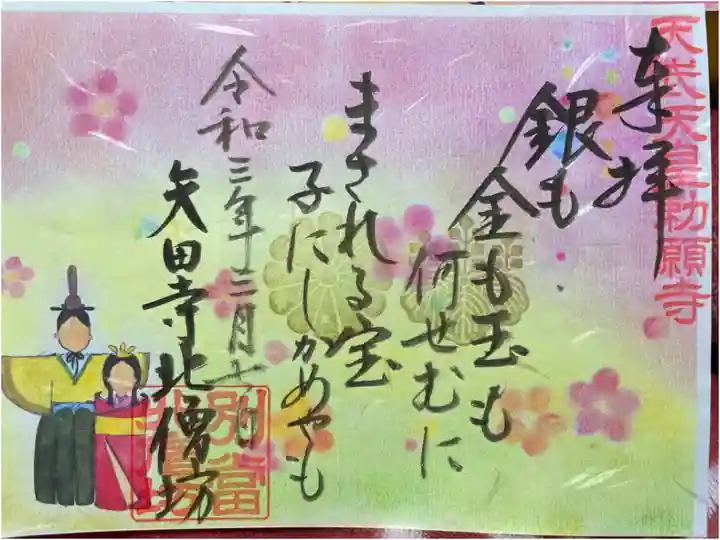 天武天皇勅願寺
奉拝
銀も
金も玉も
何せむに
まされる宝
子にしかめやも
令和三年三月十日
矢田寺北僧坊
別當